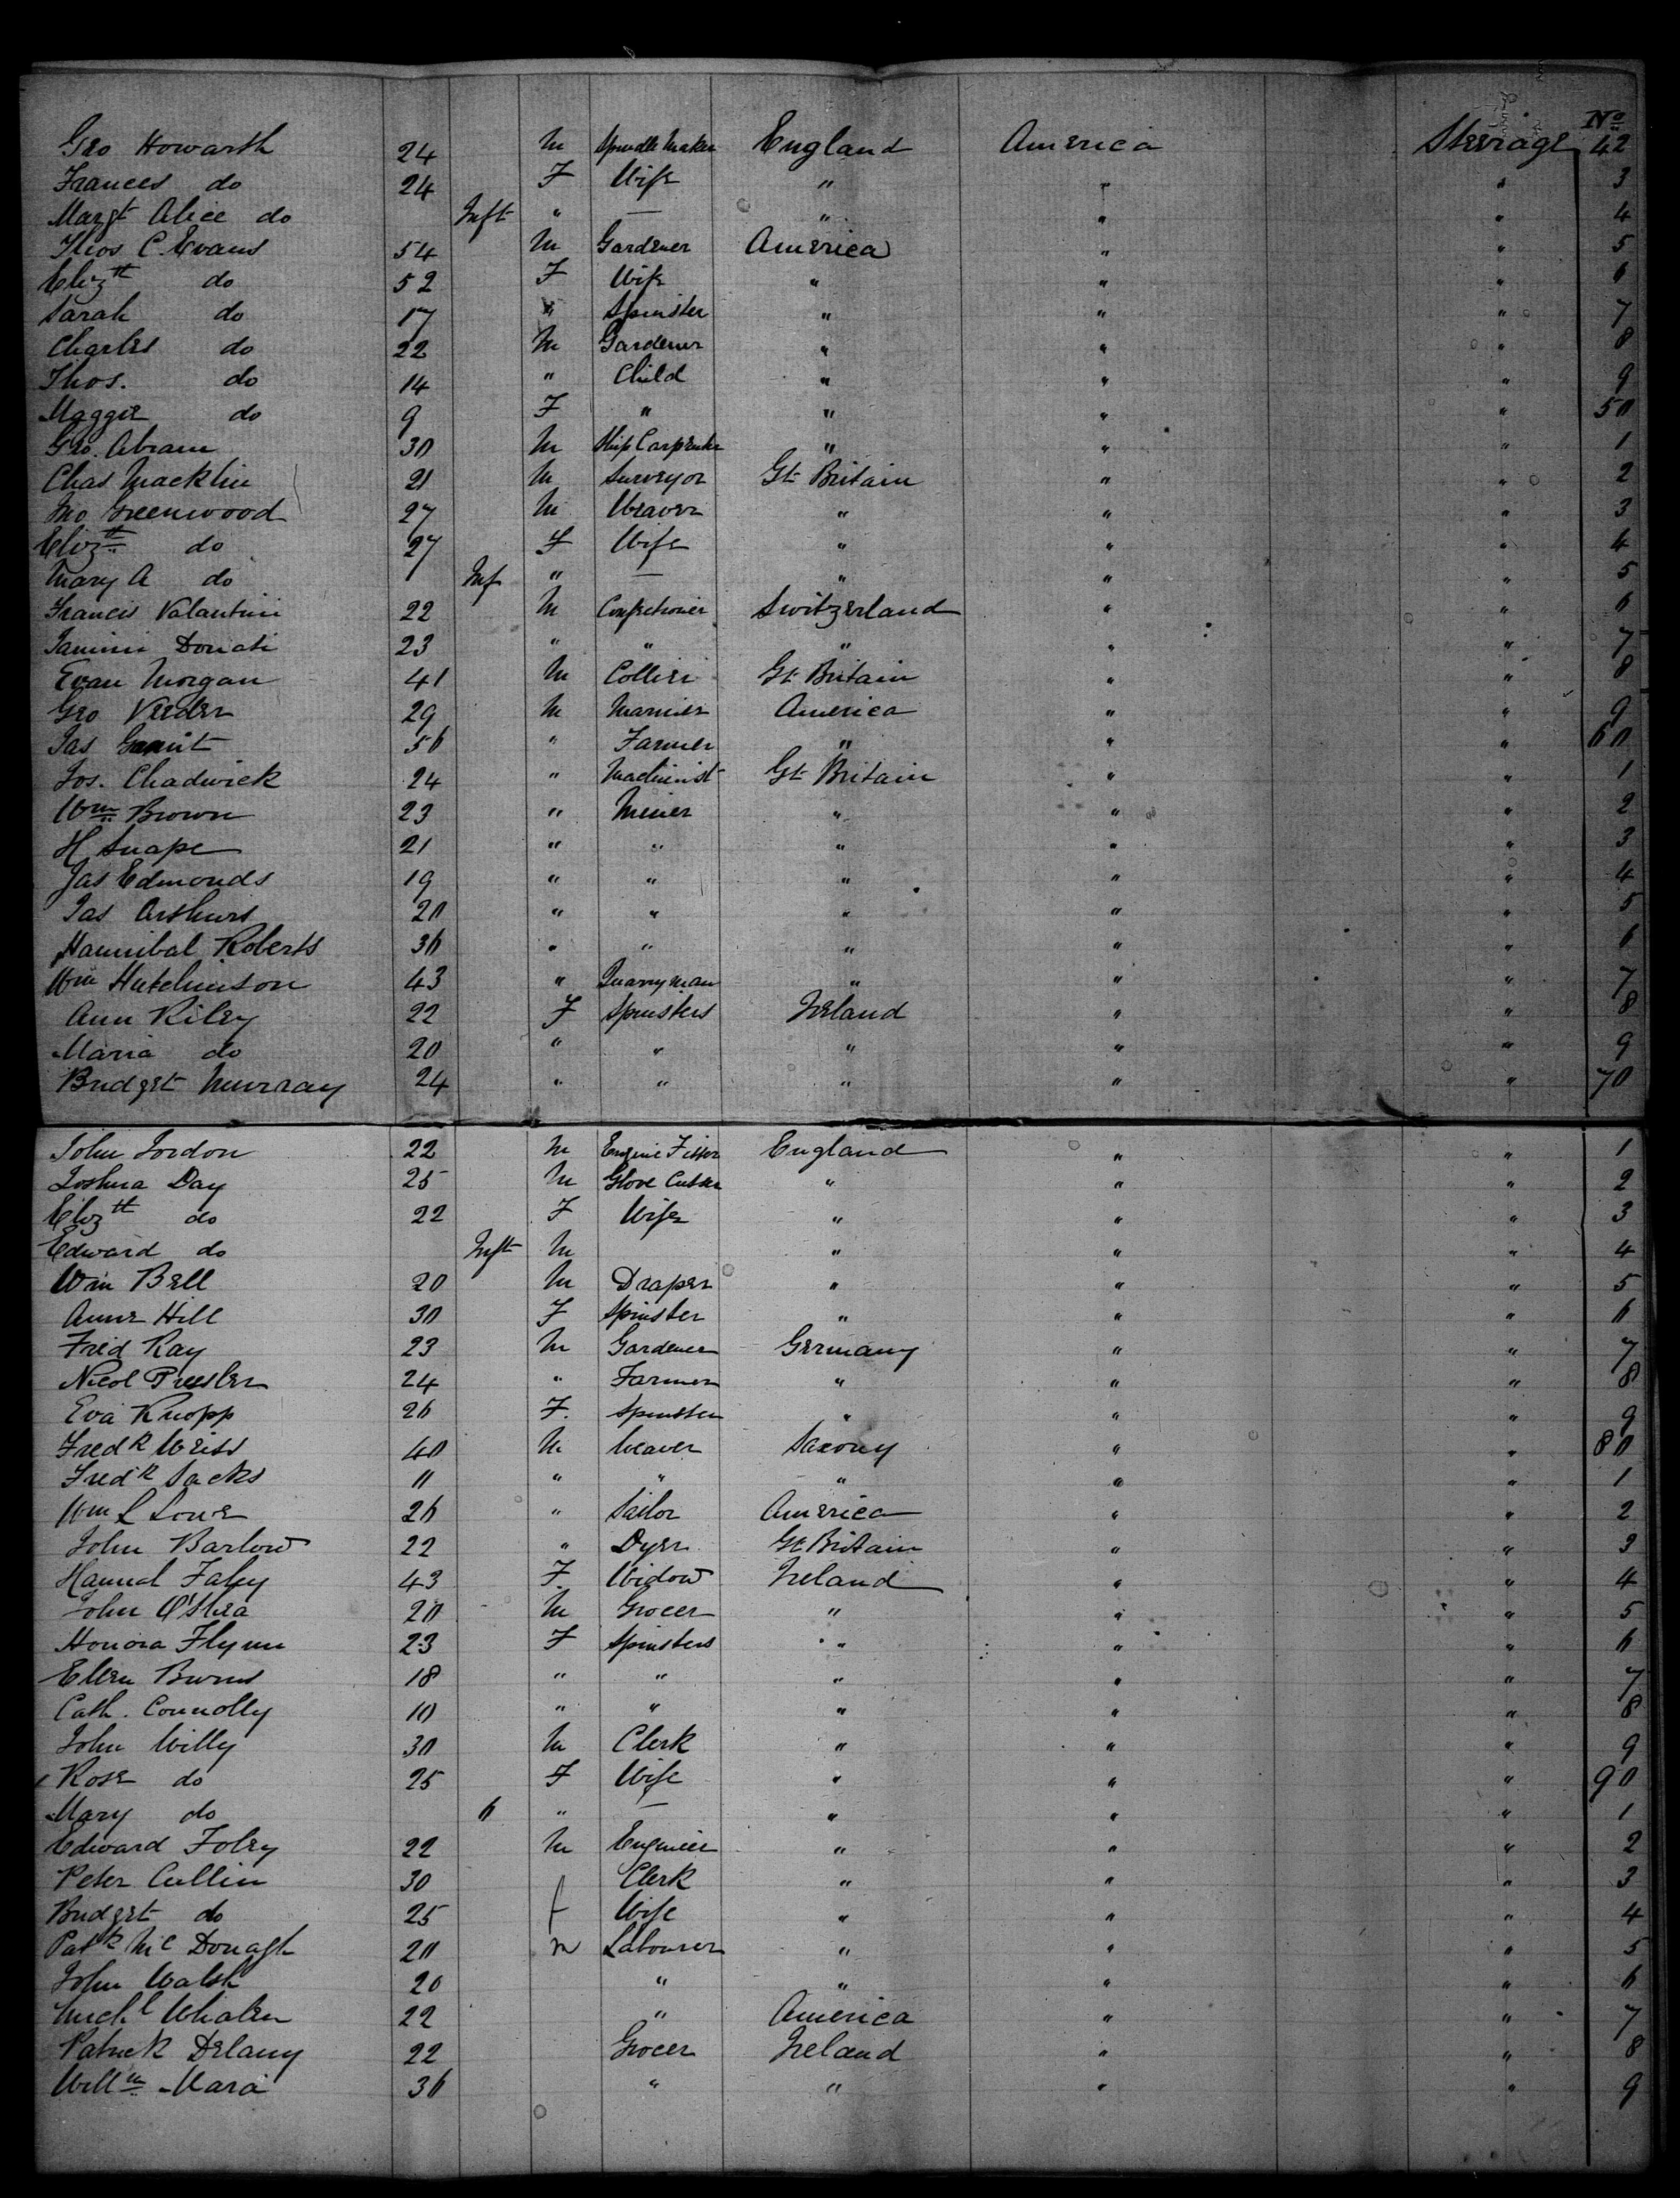 No
Geo Howarth 24 M Spindle Maker England America Steerage 42
Frances do 24 F Wife " " " 3
Margt Alice do Inft " — " " " 4
Thos C. Evans 54 M Gardener America " " 5
Elizth do 52 F Wife " " " 6
Sarah do 17 " Spinster " " " 7
Charles do 22 M Gardener " " " 8
Thos. do 14 " Child " " " 9
Maggie do 9 F " " " " 50
Geo. Abram 30 M Ship Carpenter " " " 1
Chas Macklin 21 M Surveyor Gt Britain " " 2
Jno Greenwood 27 M Weaver " " " 3
Elizth do 27 F Wife " " " 4
Mary A do 1 Inf " — " " " 5
Francis Valantini 22 M Confectioner Switzerland " " 6
Donati 23 " " " " " 7
Evan Morgan 41 M Collier Gt Britain " " 8
Geo Veeder 29 M Mariner America " " 9
Jas 56 " Farmer " " " 60
Jos. Chadwick 24 " Machinist Gt Britain " " 1
Wm Brown 23 " Miner " " " 2
H Snape 21 " " " " " 3
Jas Edmonds 19 " " " " " 4
Jas Arthurs 20 " " " " " 5
Hannibal Roberts 36 " " " " " 6
Wm Hutchinson 43 " Quarryman " " " 7
Ann Riley 22 F Spinsters Ireland " " 8
Maria do 20 " " " " " 9
Bridget Murray 24 " " " " " 70
John Jordon 22 M Engine Fitter England " " 1
Joshua Day 25 M Glove Cutter " " " 2
Elizth do 22 F Wife " " " 3
Edward do Inft M " " " 4
Wm Bell 20 M Draper " " " 5
Anne Hill 30 F Spinster " " " 6
Fred Kay 23 M Gardener Germany " " 7
Nicol 24 " Farmer " " " 8
Eva Knopp 26 F. Spinster " " " 9
Fredk Weiss 40 M Weaver Saxony " " 80
Fredk Sacks 11 " " " " " 1
Wm L Lowe 26 " Sailor America " " 2
John Barlow 22 " Dyer Gt Britain " " 3
Hannah Fahy 43 F. Widow Ireland " " 4
John O'Shea 20 M Grocer " " " 5
Honora Flynn 23 F Spinsters " " " 6
Ellen Burns 18 " " " " " 7
Cath. Connolly 10 " " " " " 8
John Willy 30 M Clerk " " " 9
Rose do 25 F Wife " " " 90
Mary do 6 " — " " " 1
Edward Foley 22 M Engineer " " " 2
Peter Cullin 30 Clerk " " " 3
Bridget do 25 f Wife " " " 4
Patk Mc Donagh 20 m Labourer " " " 5
John Walsh 20 " " " " 6
Michl Whalen 22 " America " " 7
Patrick Delany 22 Grocer Ireland " " 8
Willm Mara 36 " " " " 9